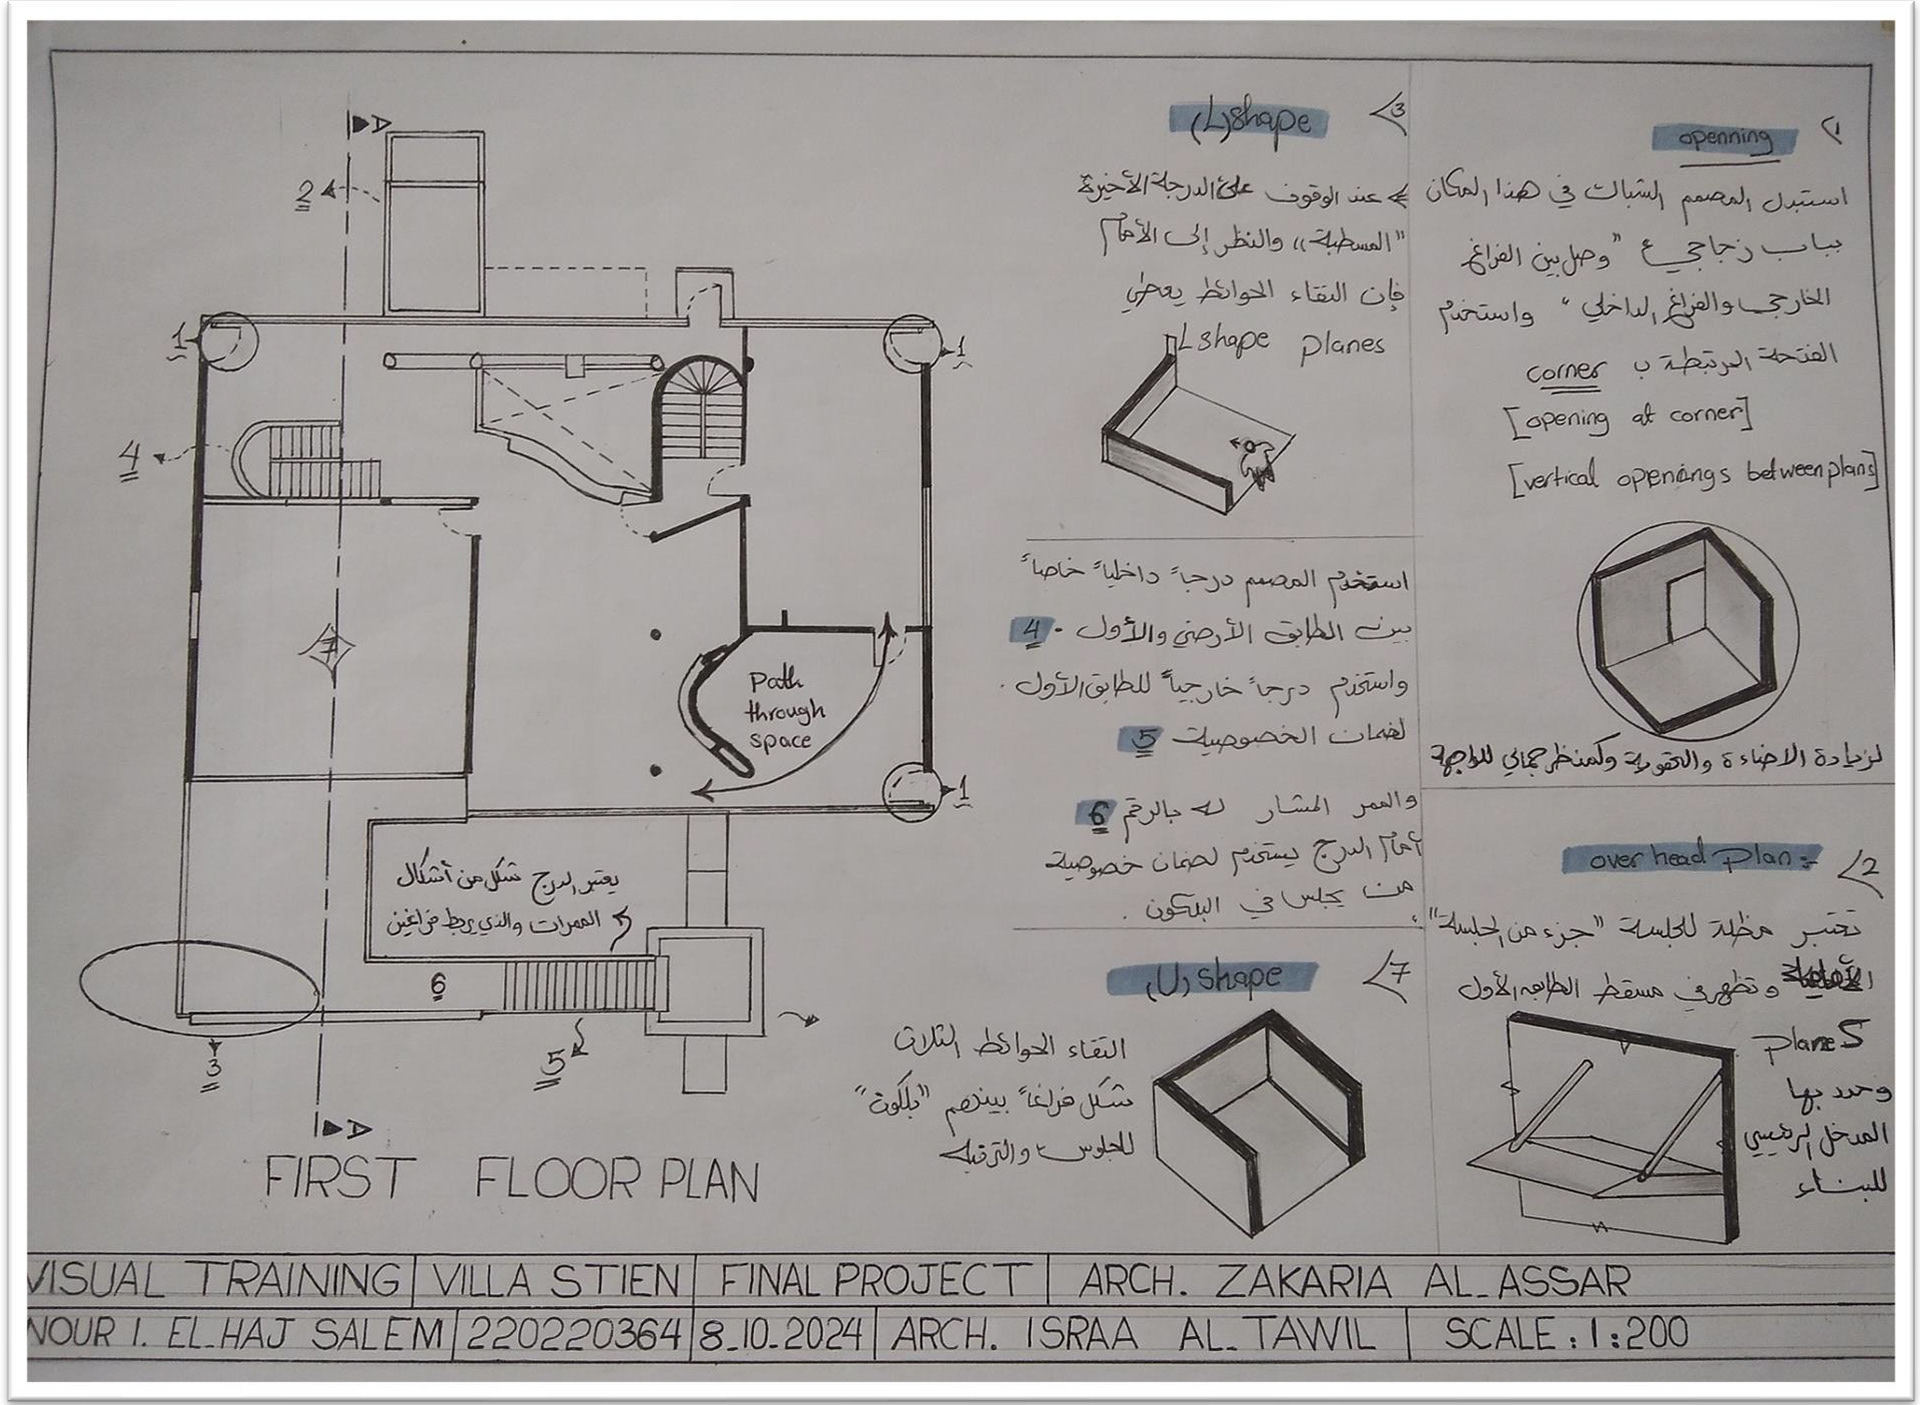 A
2
1
1
4
7
Path
through
space
1
يعتبر الدرج شكل من أشكال
الممرات والذي يربط فراغين
6
3
5
A
FIRST FLOOR PLAN
1
openning
استبدل المصمم الشباك في هذا المكان
بباب زجاجي "وصل بين الفراغ
الخارجي والفراغ الداخلي" واستخدم
الفتحة المرتبطة ب corner
[opening at corner]
[vertical openings between plans]
لزيادة الاضاءة والتهوية وكمنظر جمالي للواجهة
2
over head plan:-
تعتبر مظلة للجلسة "جزء من الجلسة"
وتظهر في مسقط الطابق الأول
planes
وحدد بها
المدخل الرئيسي
للبناء
3
(L) shape
عند الوقوف على الدرجة الأخيرة
"المسطبة" والنظر إلى الأمام
فإن التقاء الحوائط يعطي
L shape planes
استخدم المصمم درجاً داخلياً خاصاً
بين الطابق الأرضي والأول. 4
واستخدم درجاً خارجياً للطابق الأول.
لضمان الخصوصية 5
والممر المشار له بالرقم 6
أمام الدرج يستخدم لضمان خصوصية
من يجلس في البلكون.
7
(U) shape
التقاء الحوائط الثلاث
شكل فراغاً بينهم "بلكون"
للجلوس والترفيه
VISUAL TRAINING VILLA STIEN FINAL PROJECT ARCH. ZAKARIA AL_ASSAR
NOUR I. EL_HAJ SALEM 220220364 8_10_2024 ARCH. ISRAA AL_TAWIL SCALE : 1:200